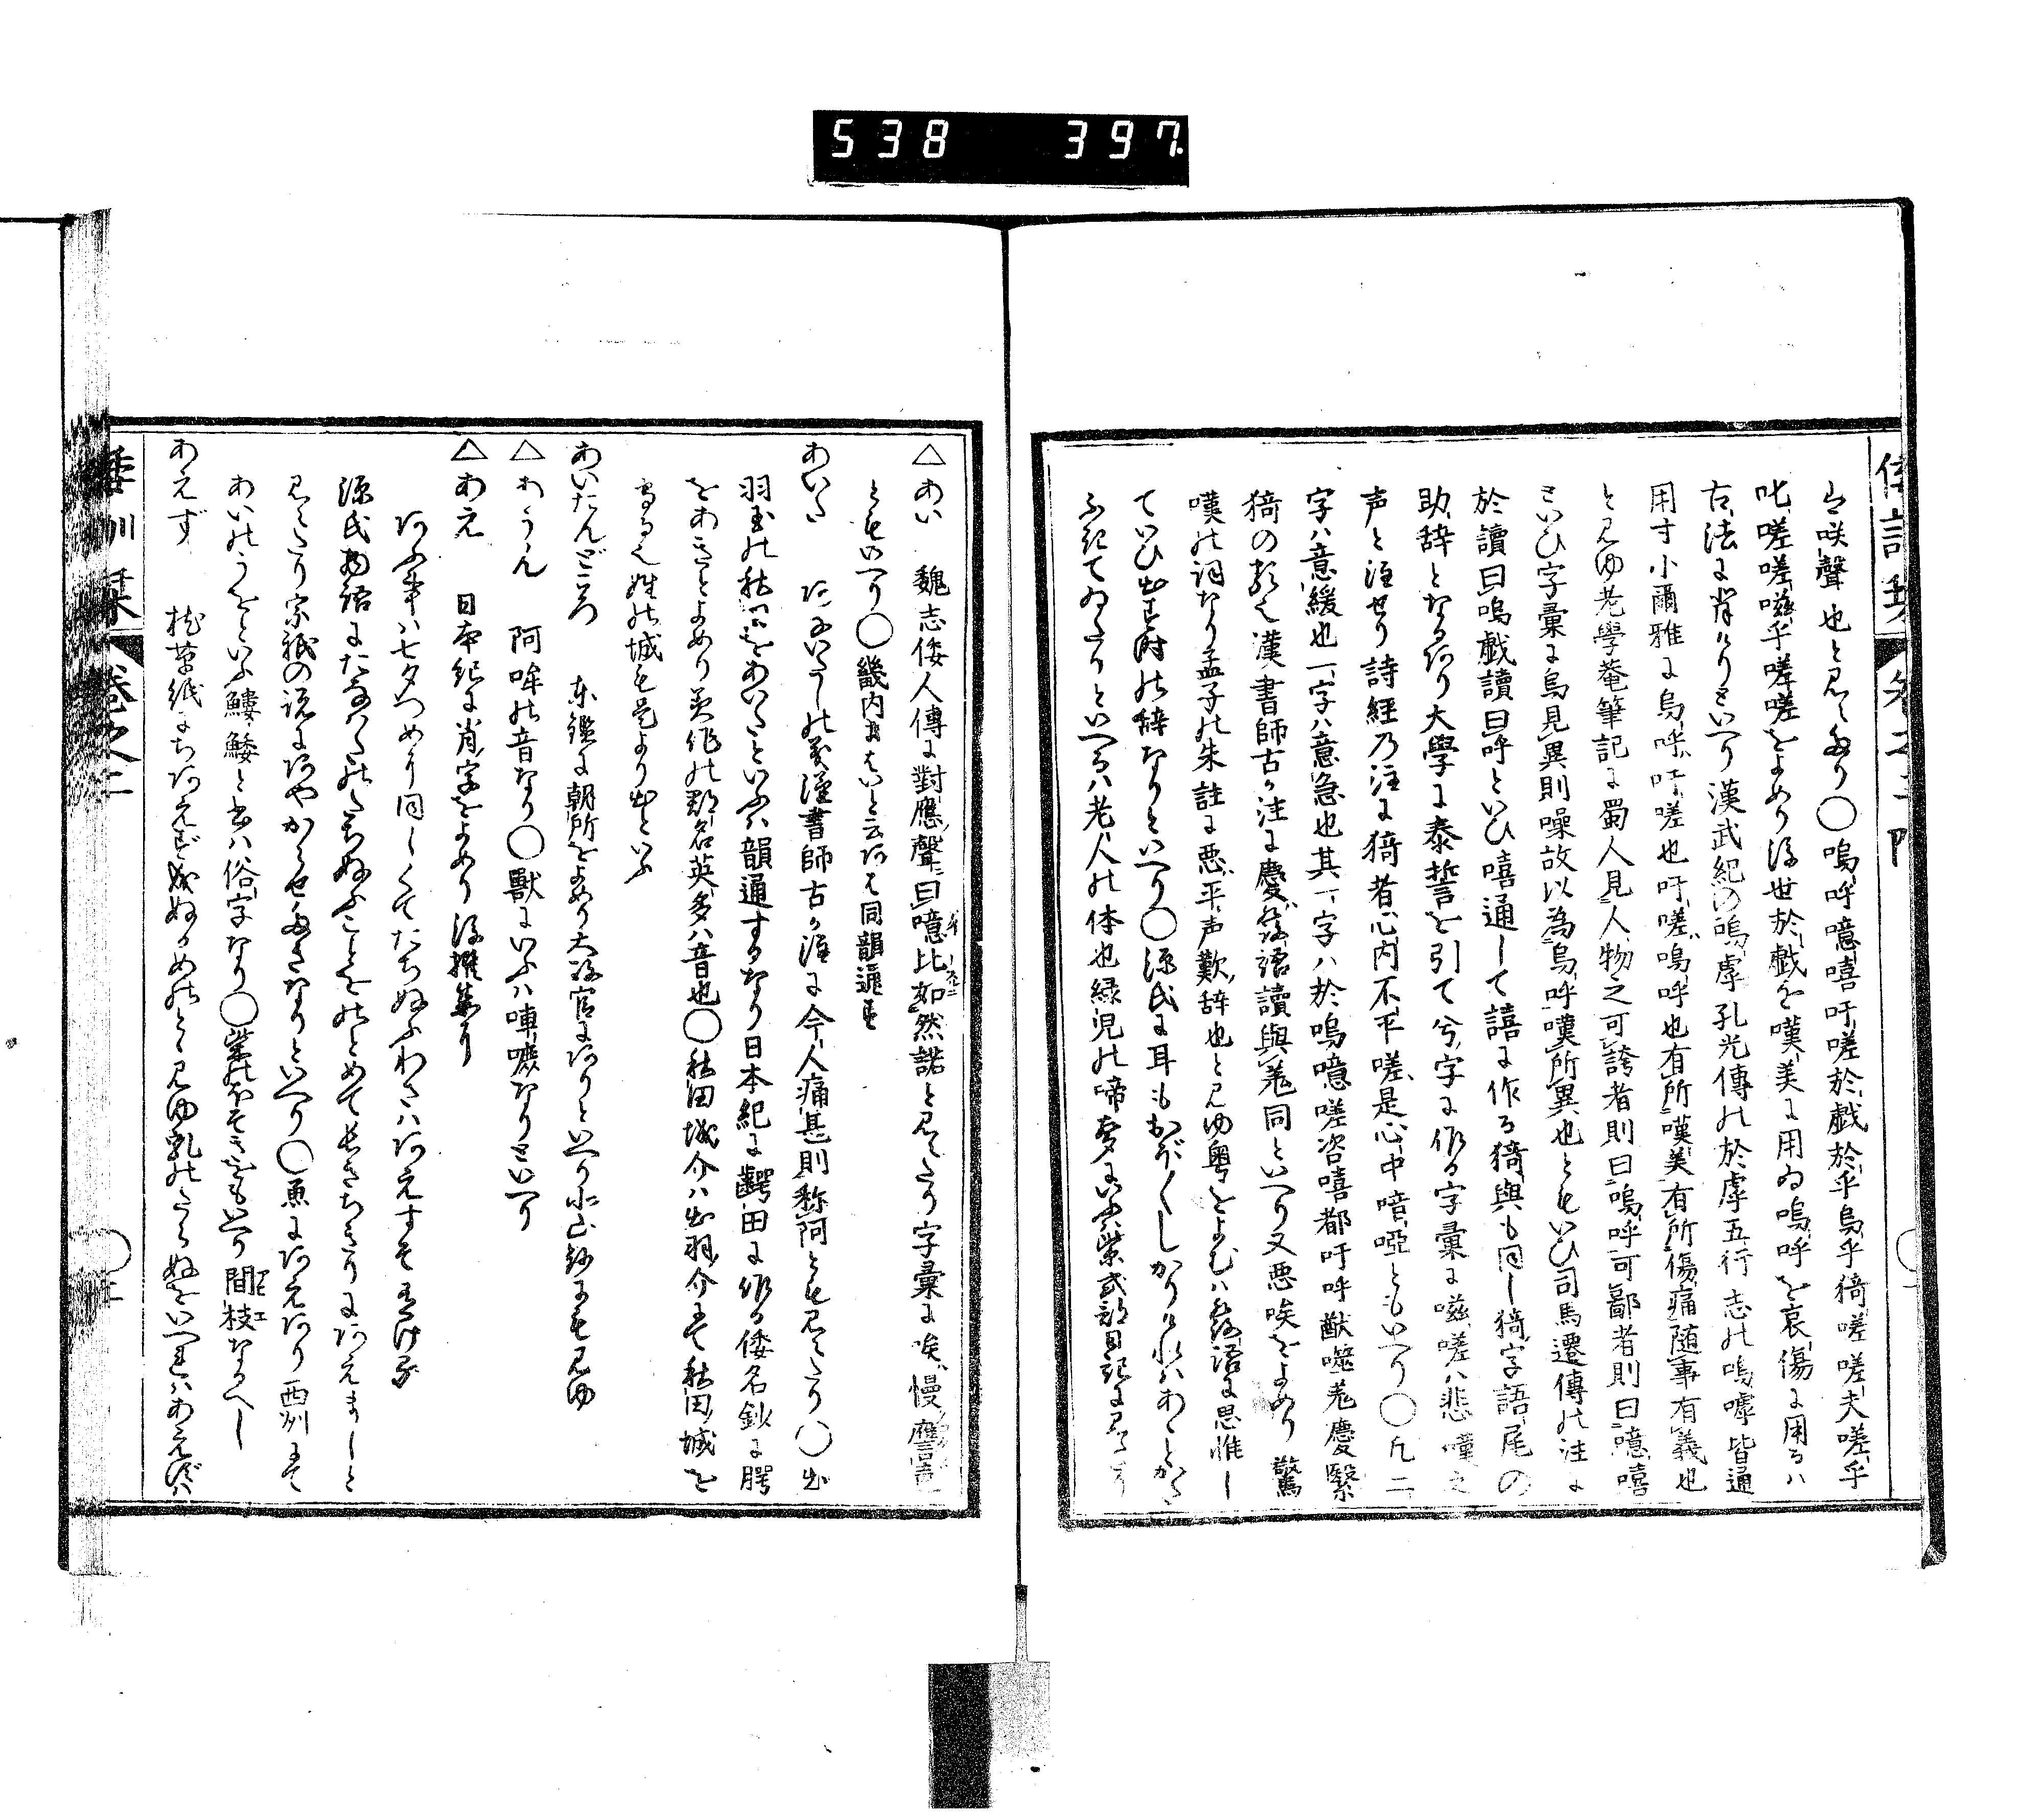 538 397
咲聲也と見えたり○嗚呼噫嘻吁嗟於戯於乎烏乎猗嗟嗟夫嗟乎
叱嗟嗟嗞乎嗟嗟をよめり後世於戯を嘆美に用ゐ嗚呼を哀傷に用るハ
古法に背けりといへり漢武紀の嗚虖孔光傳の於虖五行志の嗚嘑皆通
用す小爾雅に烏呼吁嗟也吁嗟嗚呼也有所嘆美有所傷痛随事有義也
と見ゆ老學菴筆記に蜀人見人物之可誇者則曰嗚呼可鄙者則曰噫嘻
といひ字彙に烏見異則噪故以為烏呼嘆所異也ともいひ司馬遷傳の注に
於讀曰嗚戯讀曰呼といひ嘻通して譆に作る猗與も同し猗字語尾の
助辞となるあり大學に泰誓を引て兮字に作る字彙に嗞嗟ハ悲嘆之
声と注せり詩経乃注に猗者心内不平嗟是心中喑啞ともいへり○凡二
字ハ意緩也一字ハ意急也其一字ハ於嗚噫嗟咨嘻都吁呼猷噬羌慶繄
猗の類也漢書師古か注に慶發語讀與羌同といへり又悪唉をよめり驚
嘆の詞なり孟子の朱註に悪平声歎辞也と見ゆ粤をよむハ發語に思惟し
ていひ出す時の辞なりといへり○源氏に耳もおぼ〱しかりけれハあゝとかた
ふきてゐたりといへるハ老人の体也緑児の啼声にいふハ紫式部日記に見えたり
△あい 魏志倭人傳に對應聲曰噫比如然諾と見えたり字彙に唉慢應聲
ともいへり○畿内にはいと云あは同韻通す
あいた あないたしの義漢書師古か注に今人痛甚則称阿とも見えたり○出
羽国の秋田をあいたといふハ韻通するなり日本紀に齶田に作る倭名鈔に腭
をあきとよめり美作の郡名英多ハ音也○秋田城介ハ出羽介にて秋田城を
守る也姓の城も是より出といふ
あいたんどころ 東鑑に朝所をよめり太政官にありといへり北山鈔にも見ゆ
△あうん 阿吽の音なり○獸にいふハ㖠㘈なりといへり
△あえ 日本紀に肖字をよめり後撰集に
あふ事ハ七夕つめに同しくてたちぬふわさハあえすそ有ける
源氏物語にたなはたのたちぬふことをのとめて長きちきりにあえましと
見えたり宗祇の説にあやからせたきなりといへり○魚にあえあり西州にて
あいのうをといふ鱫鯘と書ハ俗字なり○紫のほそきをもいへり間枝なるへし
あえず 枕草紙にちあえず成ぬるめのとゝ見ゆ乳のたらぬをいへれハあえずハ
倭訓栞 卷之二